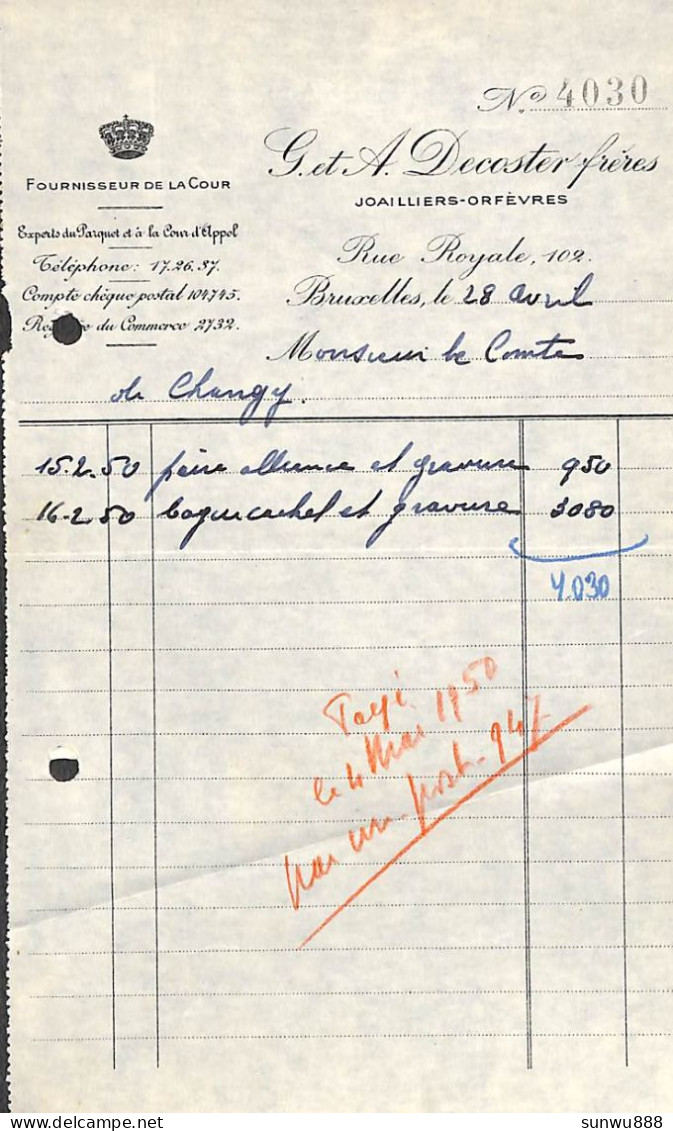 No 4030
G. et A. Decoster frères
JOAILLIERS-ORFÈVRES
Rue Royale, 102.
Bruxelles, le 28 avril
FOURNISSEUR DE LA COUR
Experts du Parquet et à la Cour d'Appel
Téléphone: 17.26.37.
Compte chèque postal 104745.
du Commerce 2732.
Monsieur le Comte
de Changy.
15.2.50 paire alliance et gravure 950
16-2 50 bague cachet et gravure 3080
4.030
Payé
le 4 Mai 1950
par post. 947
sunwu888